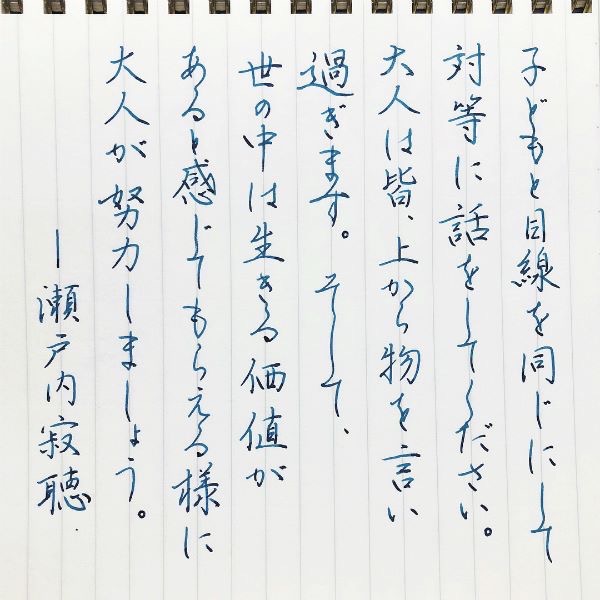 子どもと目線を同じにして
対等に話をしてください。
大人は皆、上から物を言い
過ぎます。そして、
世の中は生きる価値が
あると感じてもらえる様に
大人が努力しましょう。
ー瀬戸内寂聴.